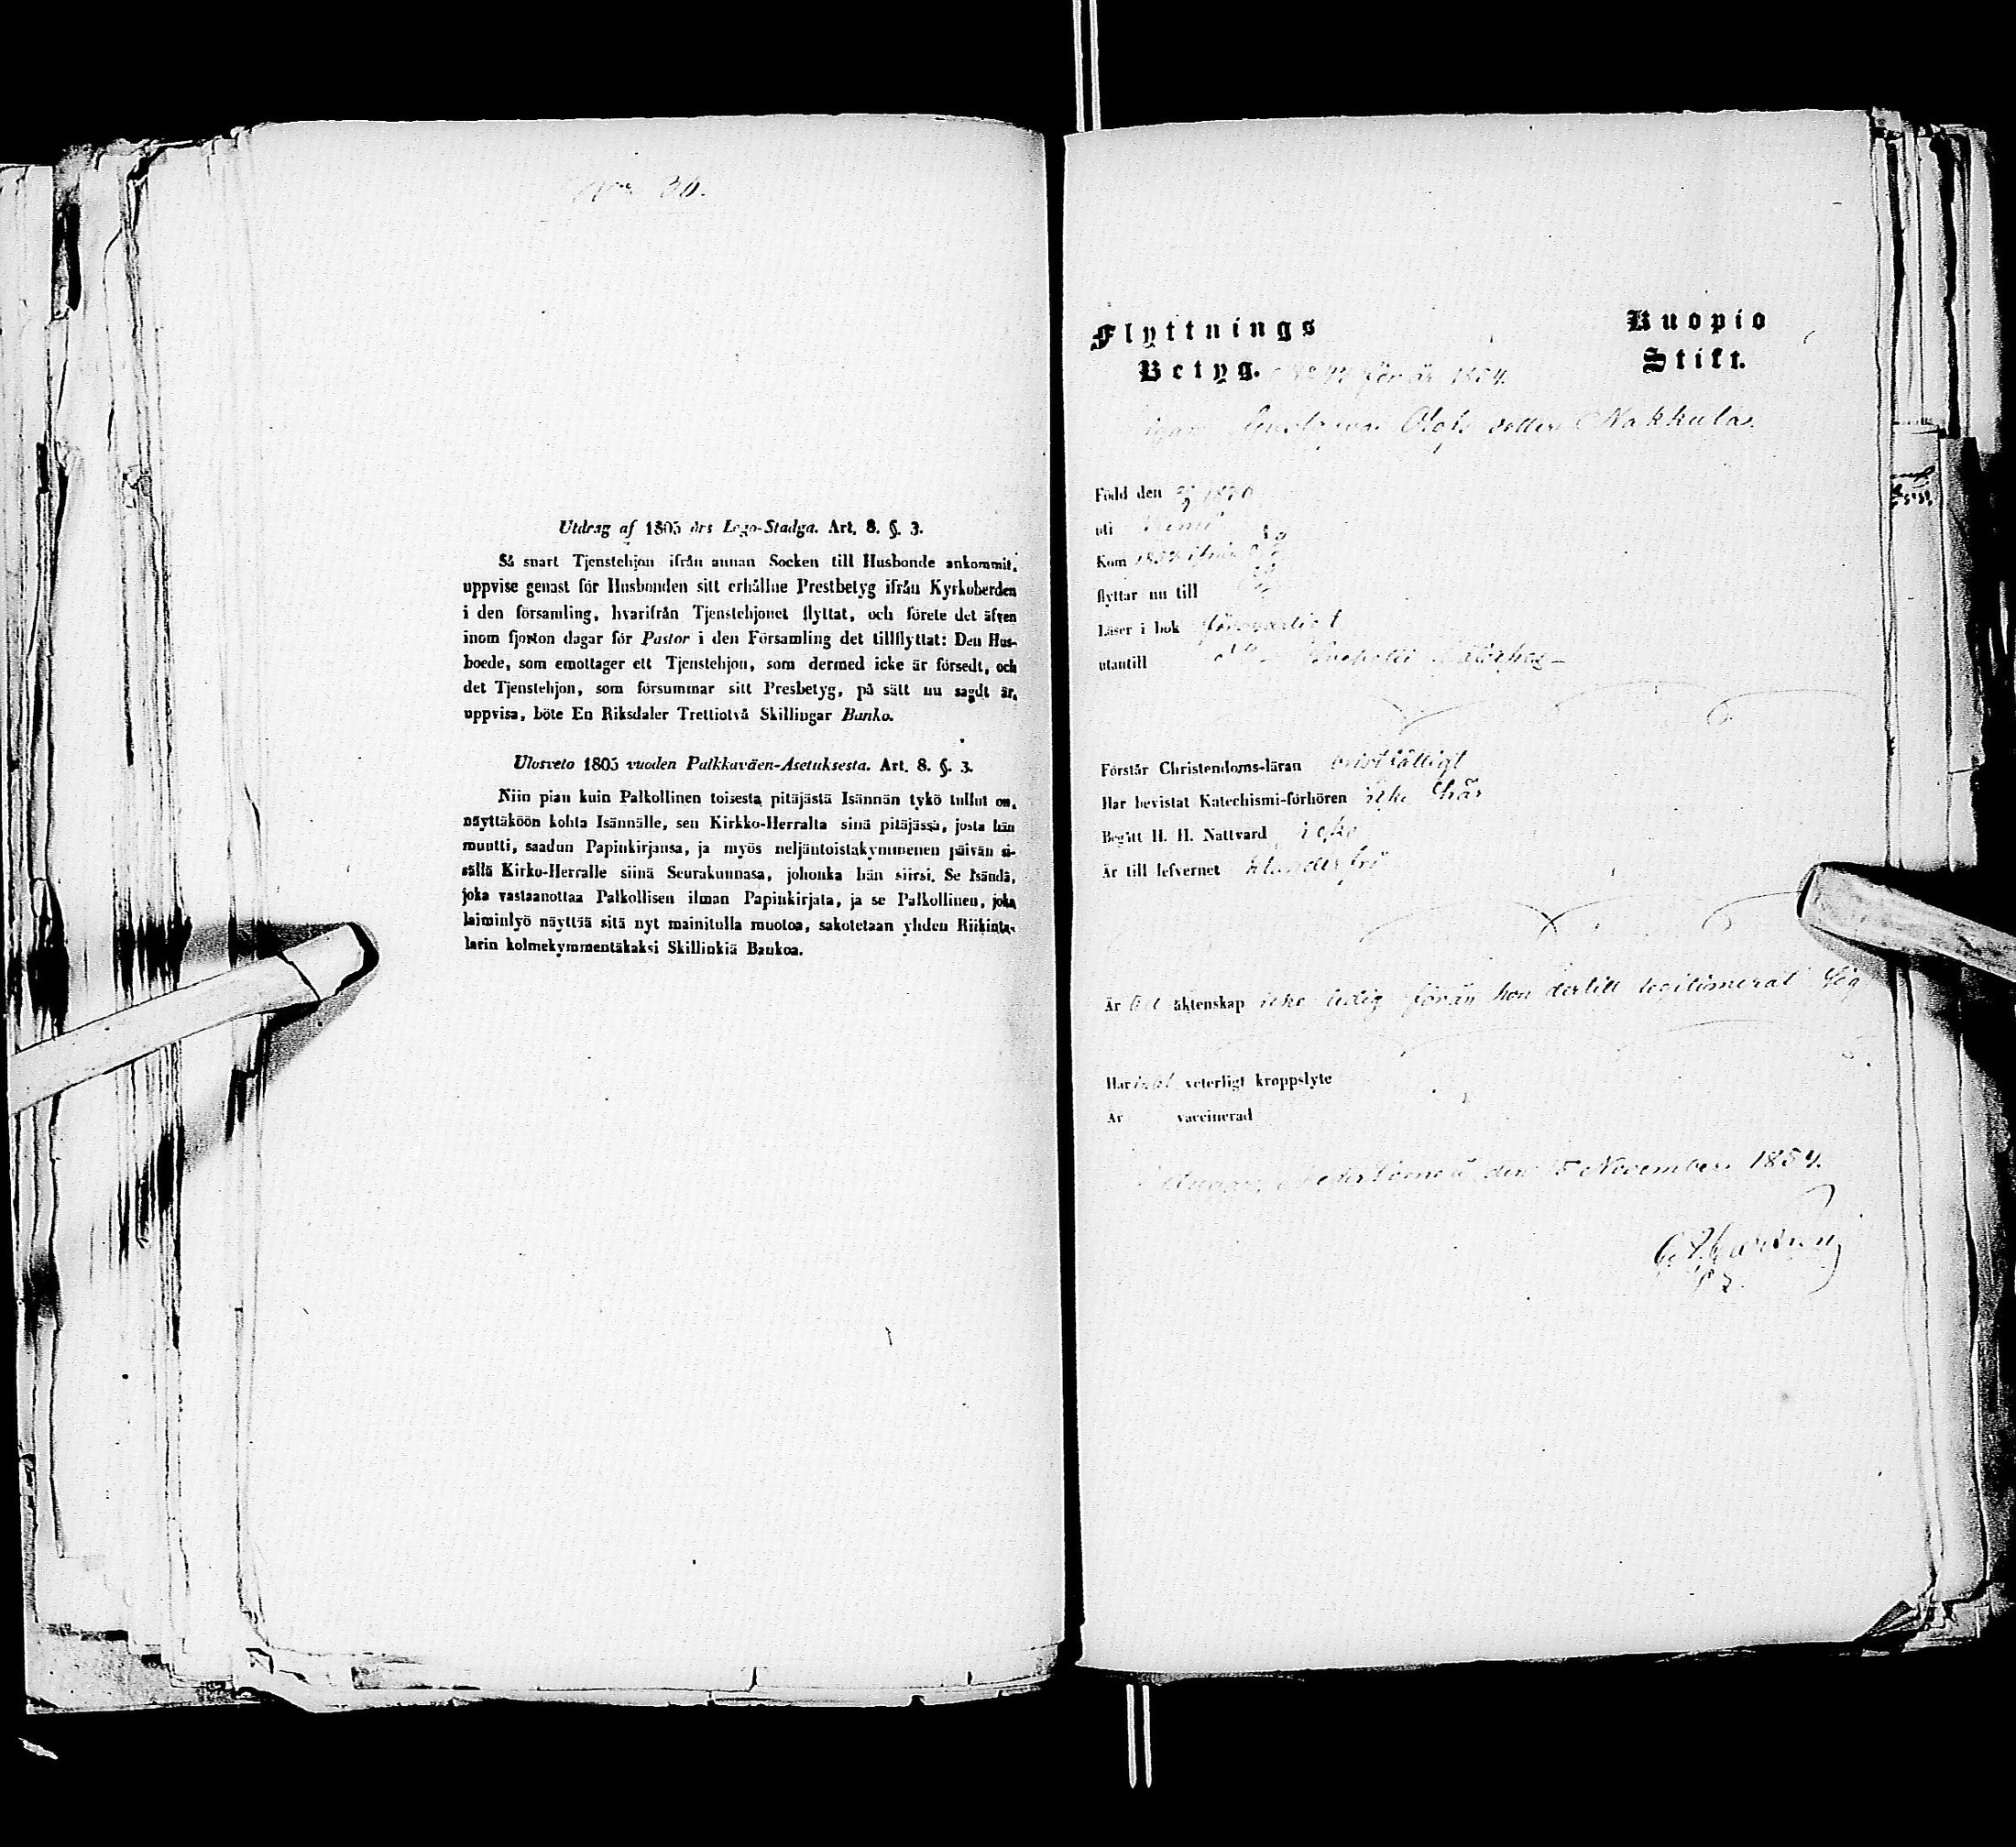 No 36.
Utdrag af 1805 års Lego-Stadga. Art. 8. §. 3.
Så snart Tjenstehjon ifrån annan Socken till Husbonde ankommit,
uppvise genast för Husbonden sitt erhållne Prestbetyg ifrån Kyrkoherden
i den församling, hvarifrån Tjenstehjonet flyttat, och förete det äfven
inom fjorton dagar för Pastor i den Församling det tillflyttat: Den Hus-
boede, som emottager ett Tjenstehjon, som dermed icke är försedt, och
det Tjenstehjon, som försummar sitt Presbetyg, på sätt nu sagdt är,
uppvisa, böte En Riksdaler Trettiotvå Skillingar Banko.
Ulosveto 1805 vuoden Palkkaväen-Asetuksesta. Art. 8. §. 3.
Niin pian kuin Palkollinen toisesta pitäjästä Isännän tykö tullut on,
näyttäköön kohta Isännälle, sen Kirkko-Herralta sinä pitäjässä, josta hän
muutti, saadun Papinkirjansa, ja myös neljäntoistakymmenen päivän si-
sällä Kirko-Herralle siinä Seurakunnasa, johonka hän siirsi. Se Isändä,
joka vastaanottaa Palkollisen ilman Papinkirjata, ja se Palkollinen, joka
laiminlyö näyttää sitä nyt mainitulla muotoa, sakotetaan yhden Riikinta-
larin kolmekymmentäkaksi Skillinkiä Bankoa.
Flyttnings
Betyg.
Kuopio
Stift.
för år 1854.
Olofs dotter Nakkula
Född den
uti
Kom ifrån
flyttar nu till
Läser i bok försvarligt
utantill
Förstår Christendoms-läran bristfälligt
Har bevistat Katechismi-förhören icke här
Begått H. H. Nattvard icke
Är till lefvernet klanderfri
Är till äktenskap icke ledig förän hon dertill legitimerat sig
Har intet veterligt kroppslyte
Är vaccinerad
Nedertorneå den 5 November 1854.